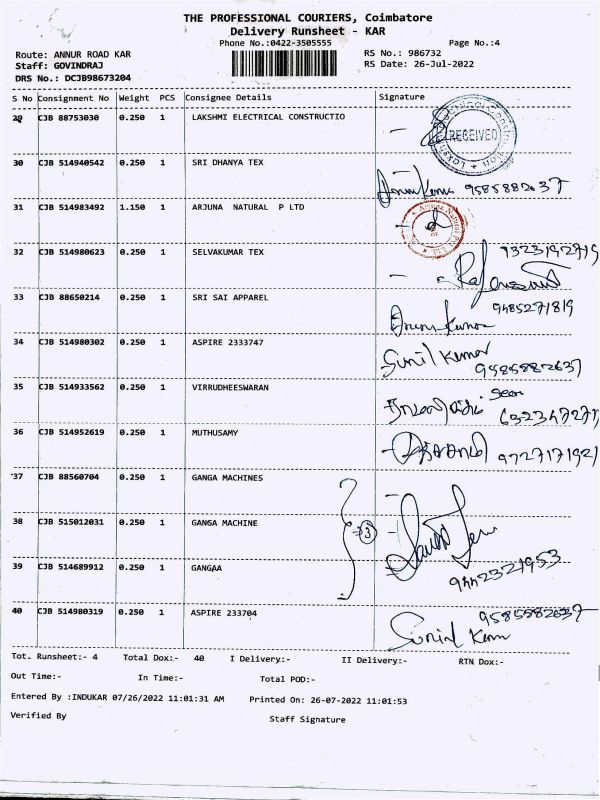 THE PROFESSIONAL COURIERS, Coimbatore
Delivery Runsheet - KAR
Phone No.:0422-3505555 Page No.:4
Route: ANNUR ROAD KAR RS No.: 986732
Staff: GOVINDRAJ RS Date: 26-Jul-2022
DRS No.: DCJB98673204
S No Consignment No Weight PCS Consignee Details Signature
29 CJB 88753030 0.250 1 LAKSHMI ELECTRICAL CONSTRUCTIO
RECEIVED
30 CJB 514940542 0.250 1 SRI DHANYA TEX
9585882637
31 CJB 514983492 1.150 1 ARJUNA NATURAL P LTD
32 CJB 514980623 0.250 1 SELVAKUMAR TEX
9323192719
33 CJB 88650214 0.250 1 SRI SAI APPAREL
9485271819
34 CJB 514980302 0.250 1 ASPIRE 2333747
Sunil Kumar
9585882637
35 CJB 514933562 0.250 1 VIRRUDHEESWARAN
36 CJB 514952619 0.250 1 MUTHUSAMY
9727171921
37 CJB 88560704 0.250 1 GANGA MACHINES
38 CJB 515012031 0.250 1 GANGA MACHINE
3
39 CJB 514689912 0.250 1 GANGAA
9442321953
40 CJB 514980319 0.250 1 ASPIRE 233704
9585882637
Tot. Runsheet:- 4 Total Dox:- 40 I Delivery:- II Delivery:- RTN Dox:-
Out Time:- In Time:- Total POD:-
Entered By :INDUKAR 07/26/2022 11:01:31 AM Printed On: 26-07-2022 11:01:53
Verified By Staff Signature